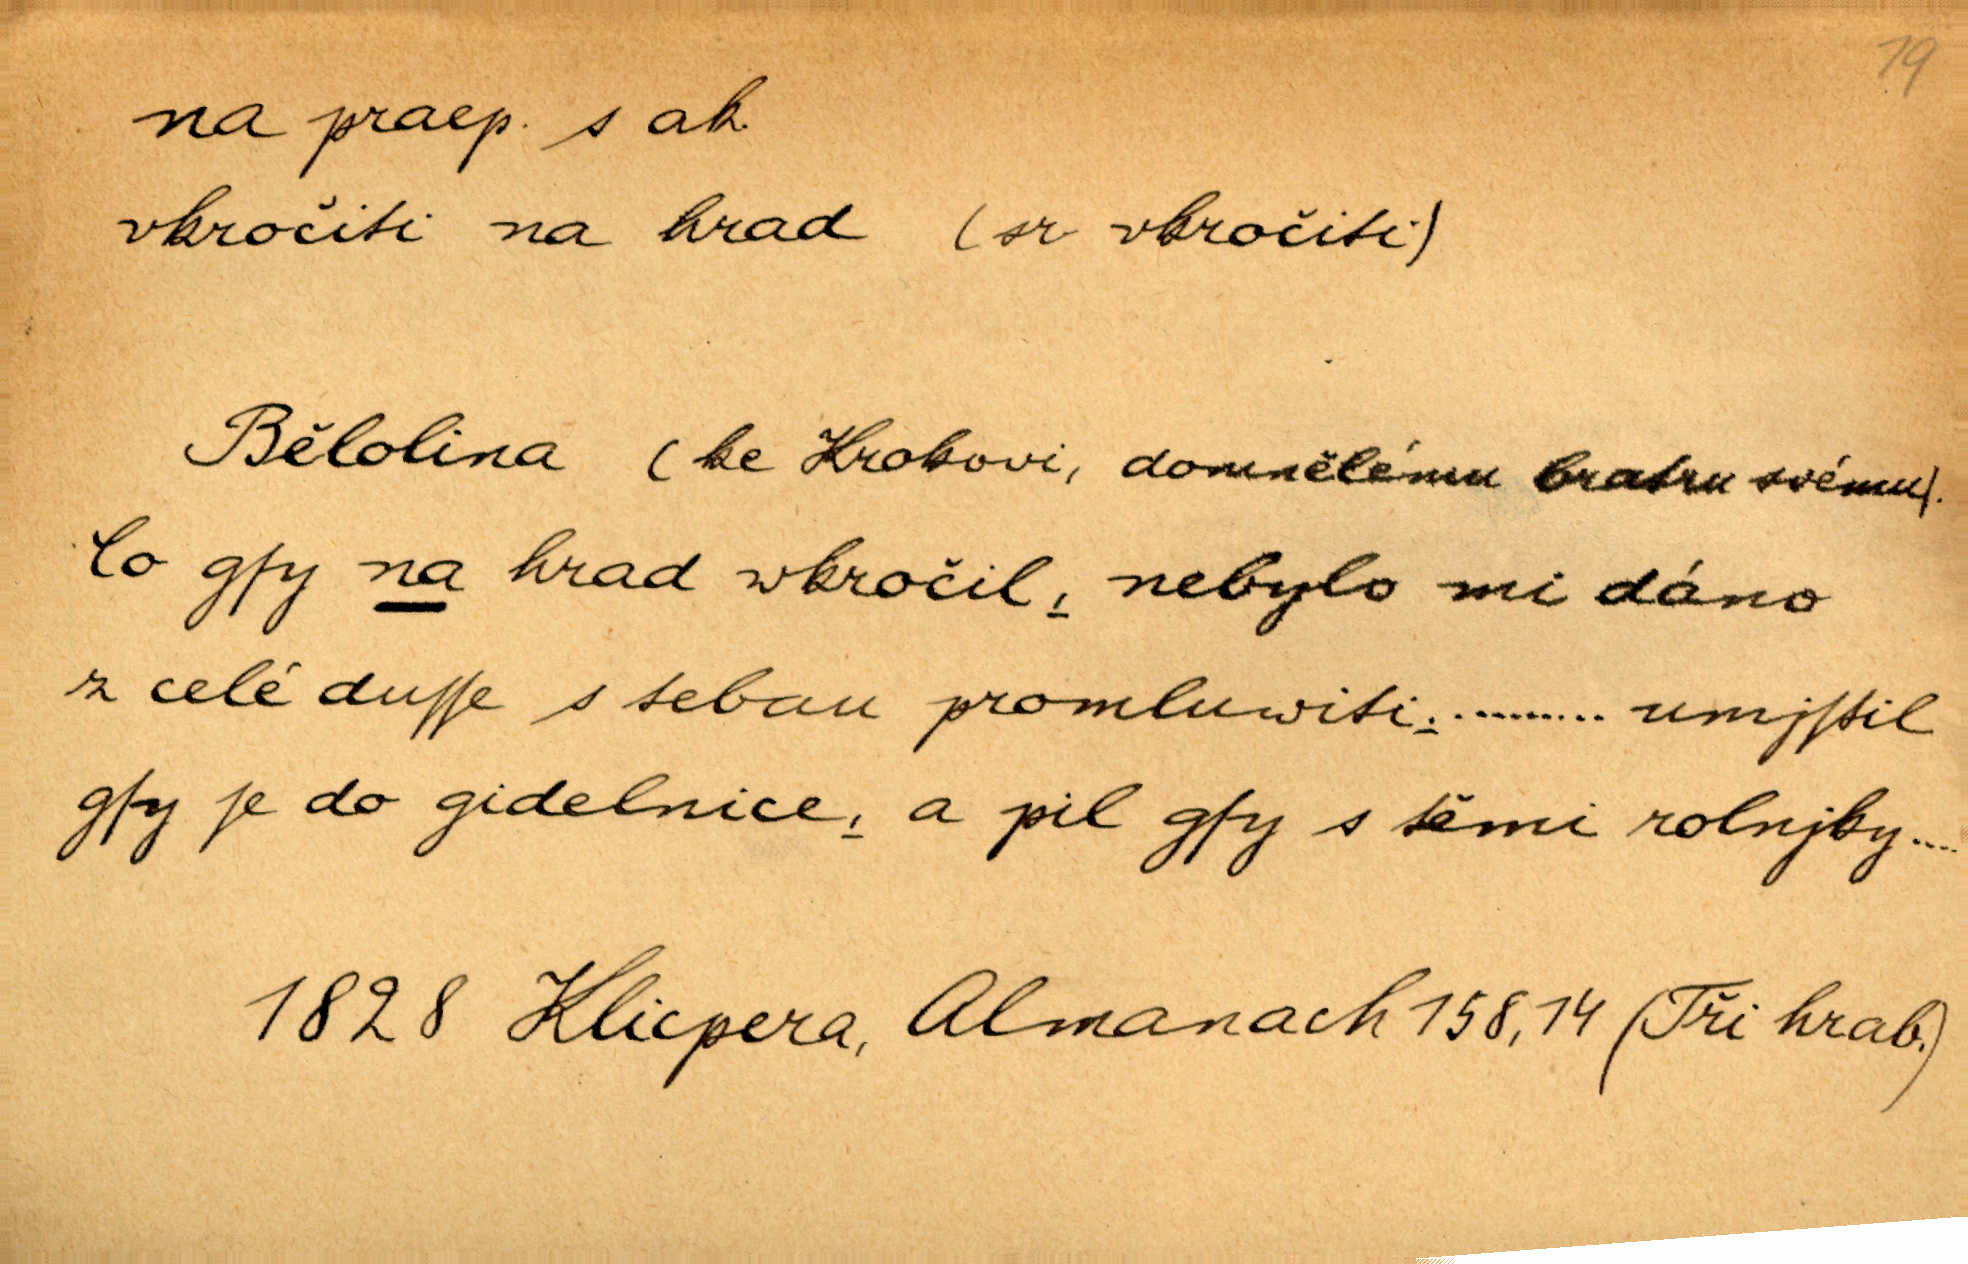 19
na praep. s ak.
vkročiti na hrad (sr. vkročiti)
Bělolina (ke Krokovi, domnělému bratru svému).
Co gſy na hrad wkročil, nebylo mi dáno
z celé duſſe s tebau promluwiti. .......... umjſtil
gſy ſe do gidelnice, a pil gſy s těmi rolnjky....
1828 Klicpera, Almanach 158,14 (Tři hrab.)